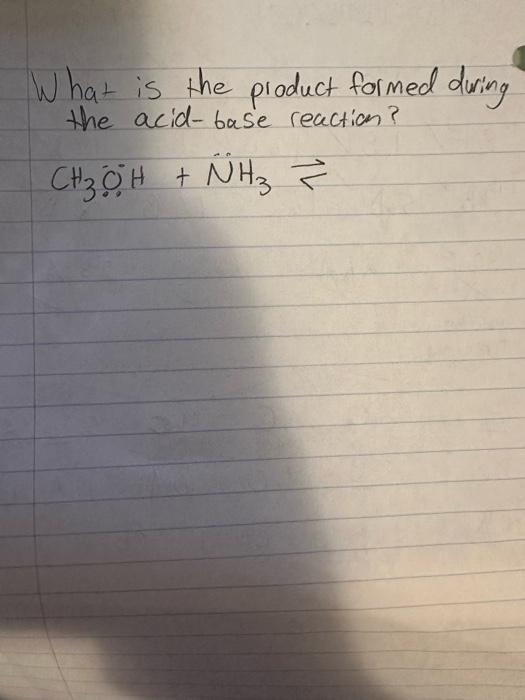 What is the product formed during
the acid-base reaction?
CH₃ÖH + N̈H₃ ⇌